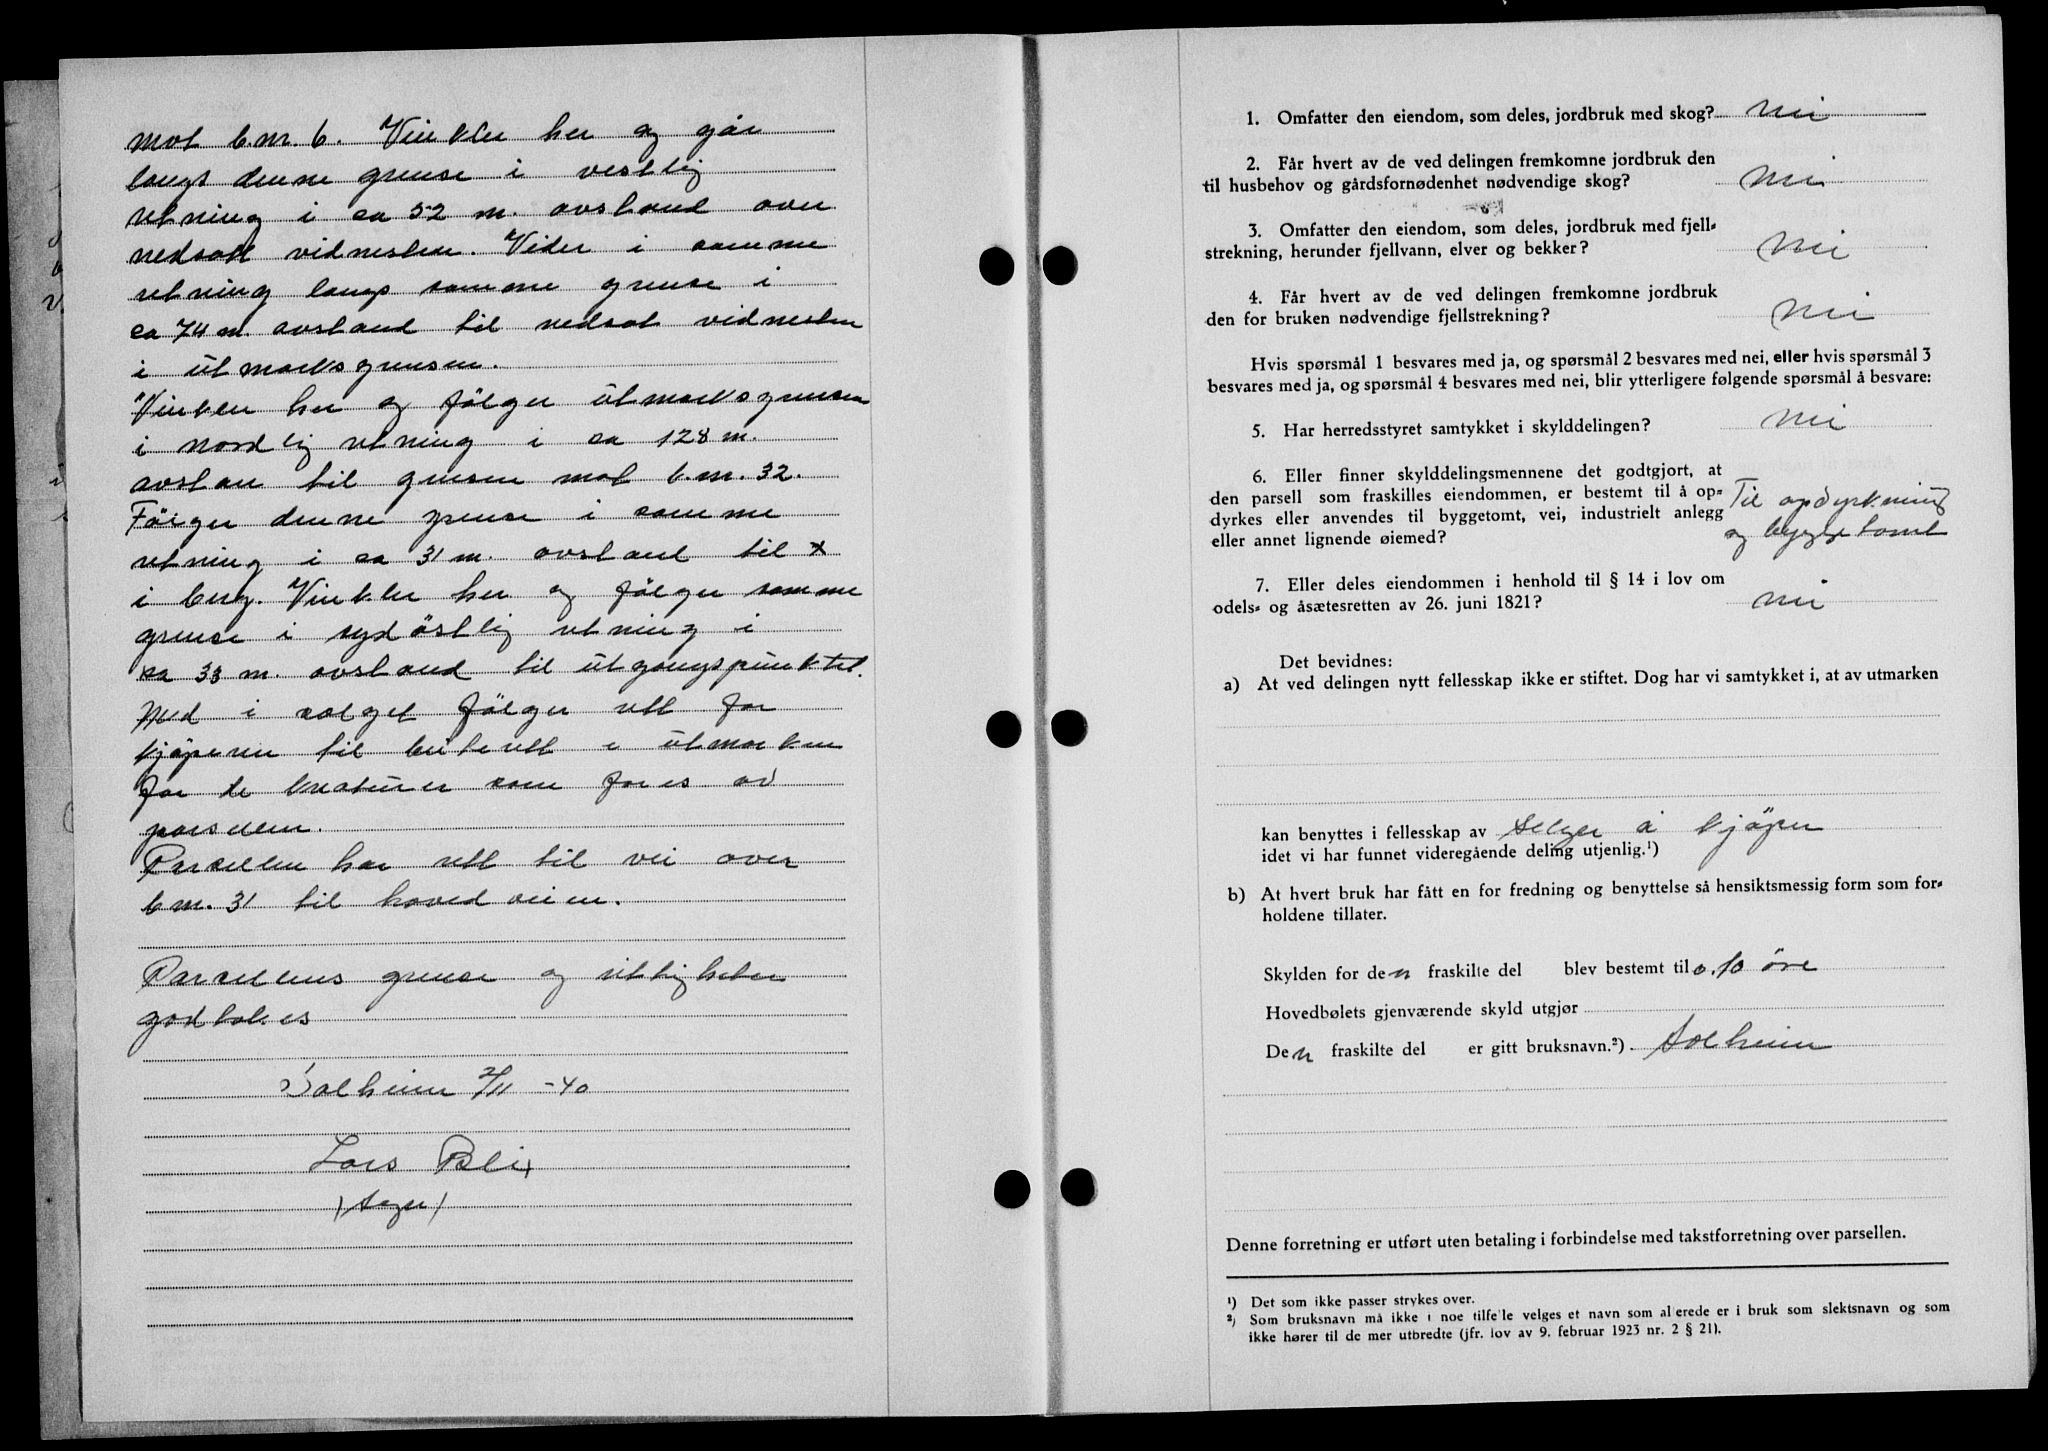 mot b.nr. 6. Vinkler her og går
langs denne grense i vestlig
retning i ca 52 m. avstand over
nedsatt vidnesten. Vider i samme
retning langs samme grense i
ca 74 m. avstand til nedsat vidnesten
i utmarksgrensen.
Vinkler her og følger utmarksgrensen
i nordlig retning i ca 128 m.
avstan til grensen mot b.nr. 32.
Følger denne grense i samme
retning i ca 31 m. avstand til x
i berg. Vinkler her og følger samme
grense i sydöstlig retning i
ca 33 m. avstand til utgangspunktet.
Med i salget følger rett for
kjøperen til beiterett i utmarken
for de kreaturer som fores av
parsellen.
Parsellen har rett til vei over
b.nr. 31 til hovedveien.
Parsellens grense og rettigheter
godtakes
Solheim 2/11 -40
Lars
/Seger/
1. Omfatter den eiendom, som deles, jordbruk med skog? nei
2. Får hvert av de ved delingen fremkomne jordbruk den
til husbehov og gårdsfornødenhet nødvendige skog? nei
3. Omfatter den eiendom, som deles, jordbruk med fjell-
strekning, herunder fjellvann, elver og bekker? nei
4. Får hvert av de ved delingen fremkomne jordbruk
den for bruken nødvendige fjellstrekning? nei
Hvis spørsmål 1 besvares med ja, og spørsmål 2 besvares med nei, eller hvis spørsmål 3
besvares med ja, og spørsmål 4 besvares med nei, blir ytterligere følgende spørsmål å besvare:
5. Har herredsstyret samtykket i skylddelingen? nei
6. Eller finner skylddelingsmennene det godtgjort, at
den parsell som fraskilles eiendommen, er bestemt til å op- Til opdyrkning
dyrkes eller anvendes til byggetomt, vei, industrielt anlegg
eller annet lignende øiemed? og byggetomt
7. Eller deles eiendommen i henhold til § 14 i lov om
odels- og åsætesretten av 26. juni 1821? nei
Det bevidnes:
a) At ved delingen nytt fellesskap ikke er stiftet. Dog har vi samtykket i, at av utmarken
kan benyttes i fellesskap av selger å kjøper
idet vi har funnet videregående deling utjenlig.¹)
b) At hvert bruk har fått en for fredning og benyttelse så hensiktsmessig form som for-
holdene tillater.
Skylden for den fraskilte del blev bestemt til 0.10 øre
Hovedbølets gjenværende skyld utgjør
Den fraskilte del er gitt bruksnavn.²) Solheim
Denne forretning er utført uten betaling i forbindelse med takstforretning over parsellen.
¹) Det som ikke passer strykes over.
²) Som bruksnavn må ikke i noe tilfelle velges et navn som allerede er i bruk som slektsnavn og som
ikke hører til de mer utbredte (jfr. lov av 9. februar 1923 nr. 2 § 21).